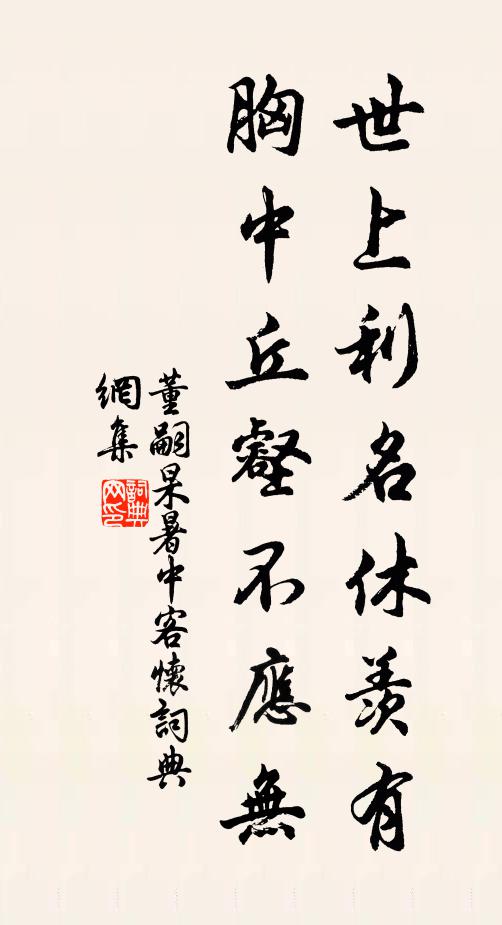 世上利名休羨有
胸中丘壑不應無
董嗣杲暑中客懷詞典
網集
詞典網印